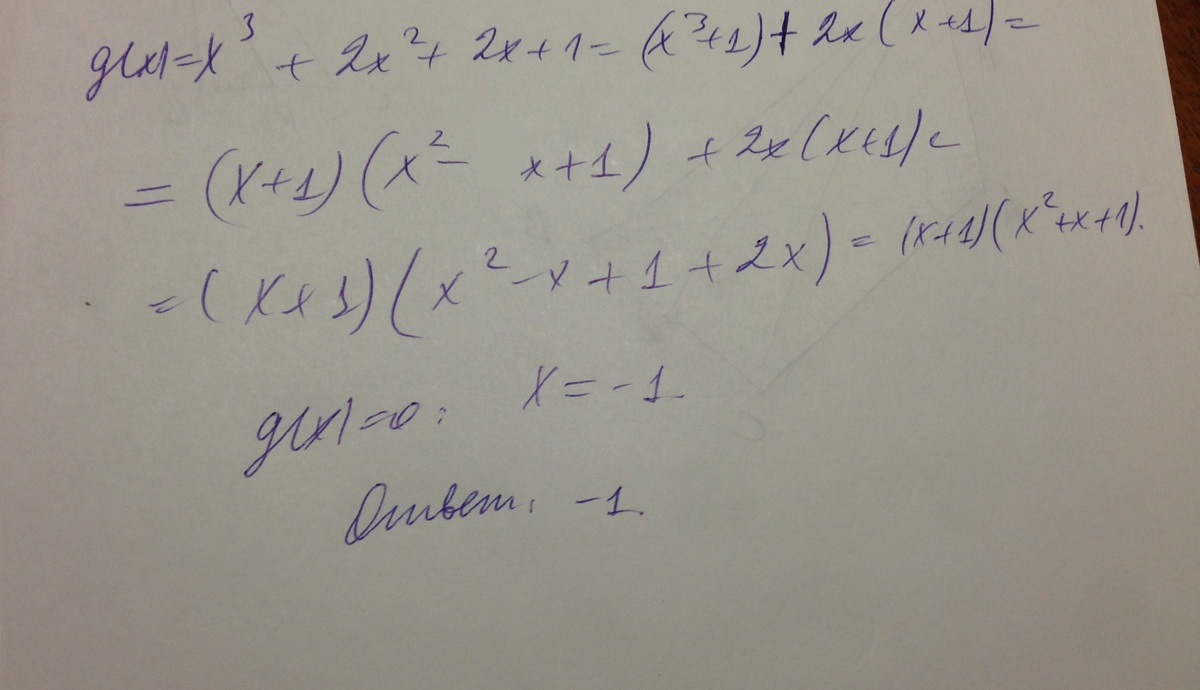 g(x)=x³ + 2x² + 2x + 1 = (x³+1) + 2x (x+1) =
= (x+1) (x² - x+1) + 2x (x+1) =
= (x+1) (x² - x + 1 + 2x) = (x+1) (x²+x+1).
g(x)=0: x = -1
Ответ: -1.